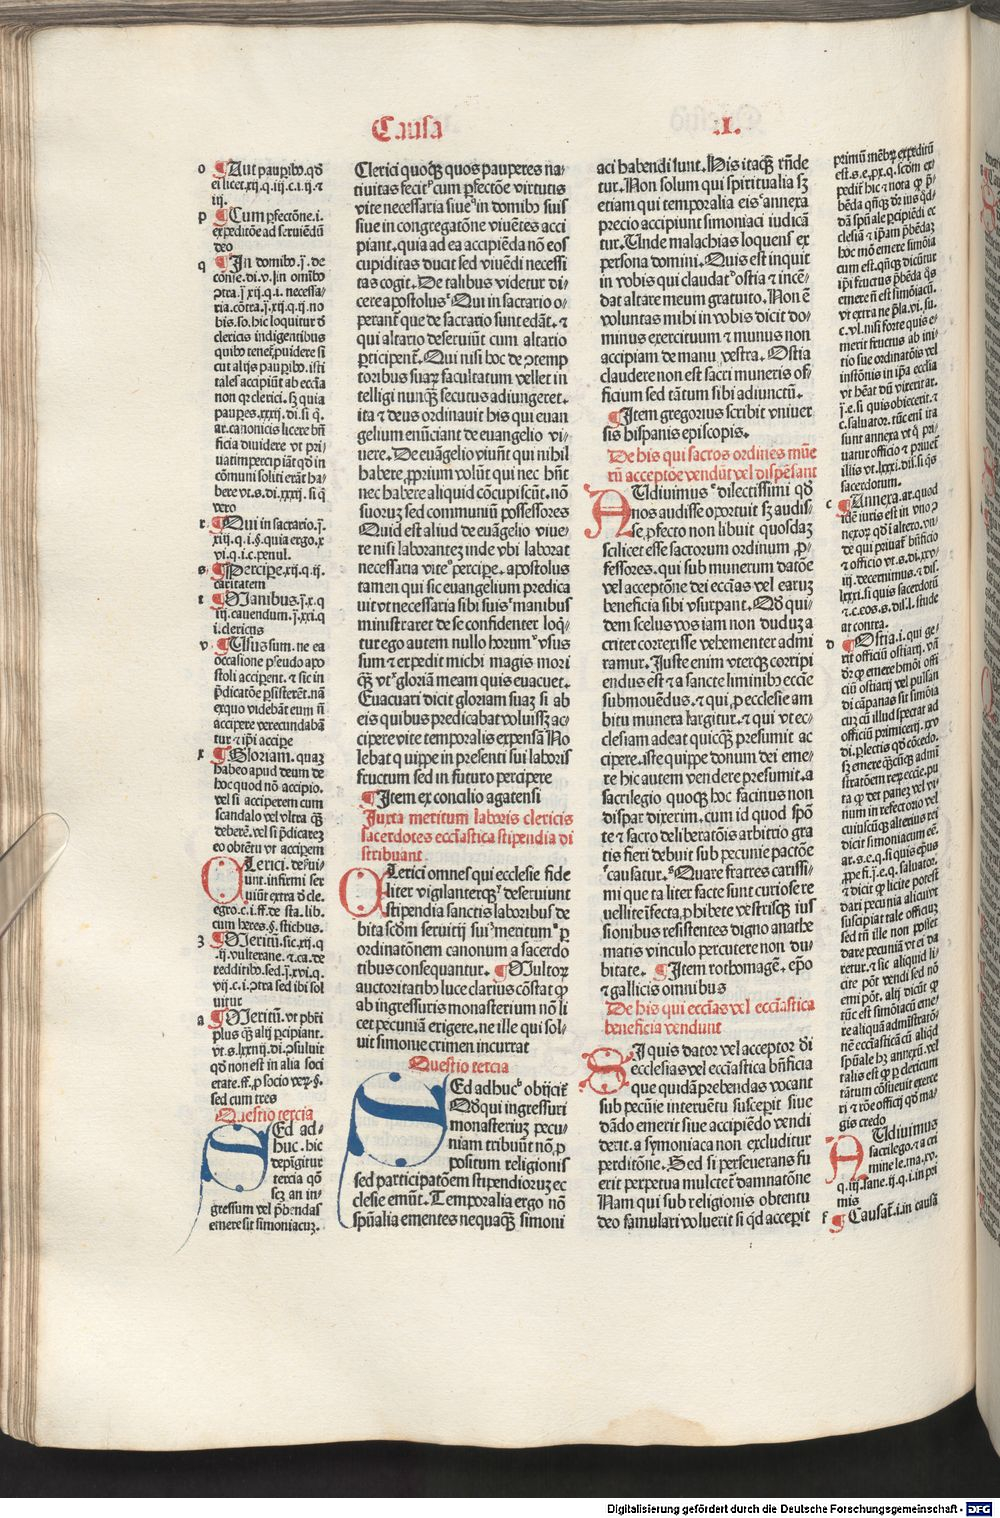 Causa .I.
o ¶ Aut paupibꝰ. qđ
ei licet. xij. q. iij. c. i. ij. ⁊
iij.
p ¶ Cum ꝑfectōne. i.
expeditōe ad seruiēdū
deo
q ¶ In domibꝰ. j̄. de
conse. di. v. l in omībꝰ
ꝯtra. j̄ xij. q. i. necessa/
ria. cōtra. j̄. xij. q. ij. no
bis. so. hic loquitur đ
clericis indigentibus
quibꝰ tenet̃ ꝓuidere si
cut alijs paupibꝰ. isti
tales accipiūt ab ecclīa
non qꝛ clerici. sꝫ quia
paupes. xxxij. di. si q̄.
ar. canonicis licere bñ
ficia diuidere vt pri/
uatim percipiāt qđ in
cōmuni soliti erāt ha/
bere vt. s. di. xxxij. si q̄
vero
r. ¶ Qui in sacrario. j̄.
xij. q. i. §. quia ergo. ⁊
vi. q. i. c. penul.
s. ¶ Percipe. xij. q. ij.
caritatem
t ¶ Manibus. j̄. x. q
iij. cauendum. j̄. xxi. q
i. clericus
v. ¶ Usus sum. ne ea
occasione pseudo apo
stoli acciperent. ⁊ sic in
p̄dicatōe ꝑsisterēt. nā
ex quo videbāt eum ñ
accipere verecundabā
tur ⁊ ip̄i accipe
x ¶ Gloriam. quaꝫ
habeo apud deum de
hoc quod nō accipio.
vel si acciperem cum
scandalo vel vltra qꝫ
deberē. vel si p̄dicareꝫ
eo obtētu vt acciperem
Clerici. deꝰui/
unt. infirmi ser
uiūt extra đ cle.
egro. c. i. ff. de sta. lib.
cum heres. §. stichus.
ʒ ¶ Meritū. sic. xij. q
.ij. vulterane. ⁊ ca. de
redditibꝰ. sed. j̄. xvi. q.
vij. c. i. ꝯtra sed ibi sol
uitur
a ¶ Meritū. vt pbr̄i
plus qꝫ alij ꝑcipiant.
vt. s. lxxxij. di. ꝯsuluit
qđ non est in alia soci
etate. ff. ꝓ socio verꝝ. §.
sed cum tres
Questio tercia
Sed ad/
huc. hic
depīgitur
tercia qō
scꝫ an in/
gressum vel p̄bendas
emere sit simoniacuꝫ.
Clerici quoqꝫ quos pauperes na/
tiuitas fecitᵖ cum perfectōne virtutis
vite necessaria siueᵠ in domibꝰ suis
siue in congregatōne viuētes acci
piant. quia ad ea accipiēda nō eos
cupiditas ducit sed viuēdi necessi
tas cogit. De talibus videtur di/
cere apostolusʳ Qui in sacrario o/
perant̃ que de sacrario sunt edāt. ⁊
qui altario deseruiūt cum altario
ꝑticipent̃. Qui nisi hoc de ꝯtemp
toribus suaꝝ facultatum vellet in
telligi nunqꝫ secutus adiungeret.
ita ⁊ deus ordinauit his qui euan
gelium enūciant de euangelio vi/
uere. De euāgelio viuūt qui nihil
habere ꝓprium volūt qui nec hñt
nec habere aliquid cōcupiscūt. nō
suoruꝫ sed communiū possessores
Quid est aliud de euāgelio viue/
re nisi laboranteꝫ inde vbi laborat
necessaria viteˢ percipe. apostolus
tamen qui sic euangelium predica
uit vt necessaria sibi suisᵗ manibus
ministraret de se confidenter loq̄/
tur ego autem nullo horumᵛ vsus
sum ⁊ expedit michi magis mori
qꝫ vtˣ gloriā meam quis euacuet.
Euacuari dicit gloriam suaꝫ si ab
eis quibus predicabat voluissꝫ ac/
cipere vite temporalis expensā No
lebat quippe in presenti sui laboris
fructum sed in futuro percipere
¶ Item ex concilio agatensi
Juxta meritum laboris clericis
sacerdotes eccl̄astica stipendia di
stribuant
Clerici omnes qui ecclesie fide
liter vigilanterqꝫʸ deseruiunt
stipendia sanctis laboribus de
bita scdm̄ seruitij suiᶻ meritumᵃ ꝑ
ordinatōnem canonum a sacerdo
tibus consequantur. ¶ Multoꝝ
auctoritatibꝰ luce clarius cōstat qꝫ
ab ingressuris monasterium nō li
cet pecuniā exigere. ne ille qui sol/
uit simonie crimen incurrat
Questio tercia
Sed adhucᵇ obijcit̃
Qđ qui ingressuri
monasteriuꝫ pecu/
niam tribuūt nō. ꝓ
positum religionis
sed participatōem stipendioruꝫ ec
clesie emūt. Temporalia ergo nō
spūalia ementes nequaqꝫ simoni
aci habendi sunt. His itaqꝫ rñde
tur. Non solum qui spiritualia sꝫ
etiam qui temporalia eisᶜ annexa
precio accipiunt simoniaci iudicā
tur. Unde malachias loquens ex
persona domini. Quis est inquit
in vobis qui claudatᵈ ostia ⁊ incē/
dat altare meum gratuito. Non ē
voluntas mihi in vobis dicit do/
minus exercituum ⁊ munus non
accipiam de manu vestra. Ostia
claudere non est sacri muneris of/
ficium sed tātum sibi adiunctū.
¶ Item gregorius scribit vniuer
sis hispanis episcopis.
De his qui sacros ordines mūe
rū acceptōe vendūt vel dispēsant
Audiuimusᵉ dilectissimi qđ
nos audisse oportuit sꝫ audis/
se, ꝓfecto non libuit quosdaꝫ
scilicet esse sacrorum ordinum ꝓ/
fessores. qui sub munerum datōe
vel acceptōne dei eccl̄ias vel earuꝫ
beneficia sibi vsurpant. Qđ qui/
dem scelus vos iam non duduꝫ a
criter correxisse vehementer admi
ramur. Iuste enim vterqꝫ corripi
endus est ⁊ a sancte liminibꝰ eccl̄ie
submouēdus. ⁊ qui ꝓ ecclesie am
bitu munera largitur. ⁊ qui vt ec/
clesiam adeat quicqꝫ presumit ac
cipere. iste quippe donum dei eme/
re hic autem vendere presumit. a
sacrilegio quoqꝫ hoc facinus non
dispar dixerim. cum id quod spō
te ⁊ sacro deliberatōis arbitrio gra
tis fieri debuit sub pecunie pactōe
ᶠcausatur. ᵍQuare fratres carissi/
mi que taliter facte sunt curiose re
uellite īfecta, ꝓhibete vestrisqꝫ ius
sionibus resistentes digno anathe
matis vinculo percutere non du/
bitate. ¶ Item rothomagē. epō
⁊ gallicis omnibus
De his qui eccl̄ias vel eccl̄iastica
beneficia vendunt
Si quis dator vel acceptor đi
ecclesias vel eccl̄astica bn̄ficia
que quidā prebendas vocant
sub pecūie interuētu susceperit siue
dādo emerit siue accipiēdo vendi
derit. a symoniaca non excluditur
perditōne. Sed si perseuerans fu
erit perpetua mulctet̃ damnatōne
Nam qui sub religionis obtentu
deo famulari voluerit si q̄d acceperit
primū mēbrꝝ expeditū
est. s. e. ꝓx. q. scdm̄ ex/
pedit̃ hic ⁊ nota ꝙ p̄/
bēda qn̄qꝫ dr̄ ius qđ/
dā spūale ꝑcipiēdi in ec
clesia ⁊ ip̄am p̄bēdaꝫ
hoc mō emere simōia
cum est. qn̄qꝫ dicūtur
ip̄i fructus p̄bēda q̄s
emere nō est simōiacū.
vt extra ne p̄la. vi. su.
c. vl. nisi forte quis e/
merit fructus ab ini/
tio sue ordinatōis vel
instōnis in ip̄a eccl̄ia
vt hēat dū vixerit ar.
j̄. e. si quis obiecerit. ⁊
c. saluator. tūc em̄ ita
sunt annexa vt q̄ pri/
uatur officio ⁊ priuet̃
illis vt. lxxxi. dis. si q̄s
sacerdotum.
c ¶ Annexa. ar. quod
idē iuris est in vno ꝯ
nexoꝝ qđ ī altero. vn̄
de qui priuat̃ bn̄ficio
⁊ officio vt. s. di. xxv.
iij. decernimus. ⁊ dis.
lxxxi. si quis sacerdotū
⁊. c. eos. s. dis. l. stude
at contra.
d ¶ Ostia. i. qui ge/
rit officiū ostiarij. vn̄
dr̄ ꝙ emere hmōi offi
ciū ostiarij vel pulsan
di cāpanas sit simōia
cuꝫ cū illud spectat ad
officiū primicerij. xxv
di. ꝑlectis qđ cōcedo.
sꝫ emere qn̄cūqꝫ admi
stratōem rerꝝ eccl̄ie. pu
ta ꝙ det panez vel vi
num in refectorio vel
cuiuscūqꝫ alterius rei
dicit simoniacum eē.
ar. s. e. q. si quis ep̄us
⁊ ꝓpe fi. j̄. e. q. saluator.
⁊ dicit ꝙ licite potest
dari pecunia alicui vt
suscipiat tale officiuꝫ
sed tn̄ ille non posset
dare pecuniā vt ei da
retur. ⁊ sic aliquid li/
cite pōt vendi sed nō
emi pōt. alij dicūt ꝙ
tūc est simōiacū eme/
re aliquā administratō/
nē eccl̄iasticā cū aliqđ
spūale hꝫ annexū. vel
talis est ꝙ ꝑ clericum
tātum cōsueuit exerce
ri ⁊ rōe officij qđ ma/
gis credo
Audiuimus
sacrilego. ⁊ a cri
mine le. ma. xv.
q. iij. sane. ij. q. i. in pri
mis
f ¶ Causat̃. i. in causā
Digitalisierung gefördert durch die Deutsche Forschungsgemeinschaft - DFG